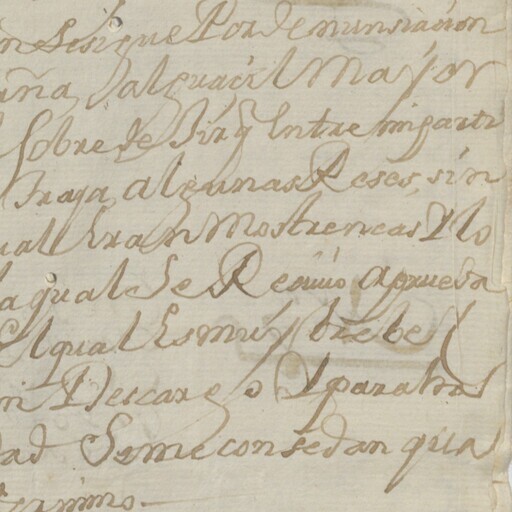 se sigue Por denunsiasion
alguaçil Mayor
Sobre de Sir q Entre mi parti
traya algunas Reses, sin
ual Eran Mostrencas Y lo
la qual se Reciuio aprueba
El qual Es muy brebe
Descargo Y para
dad Se me consedan qua
termino.